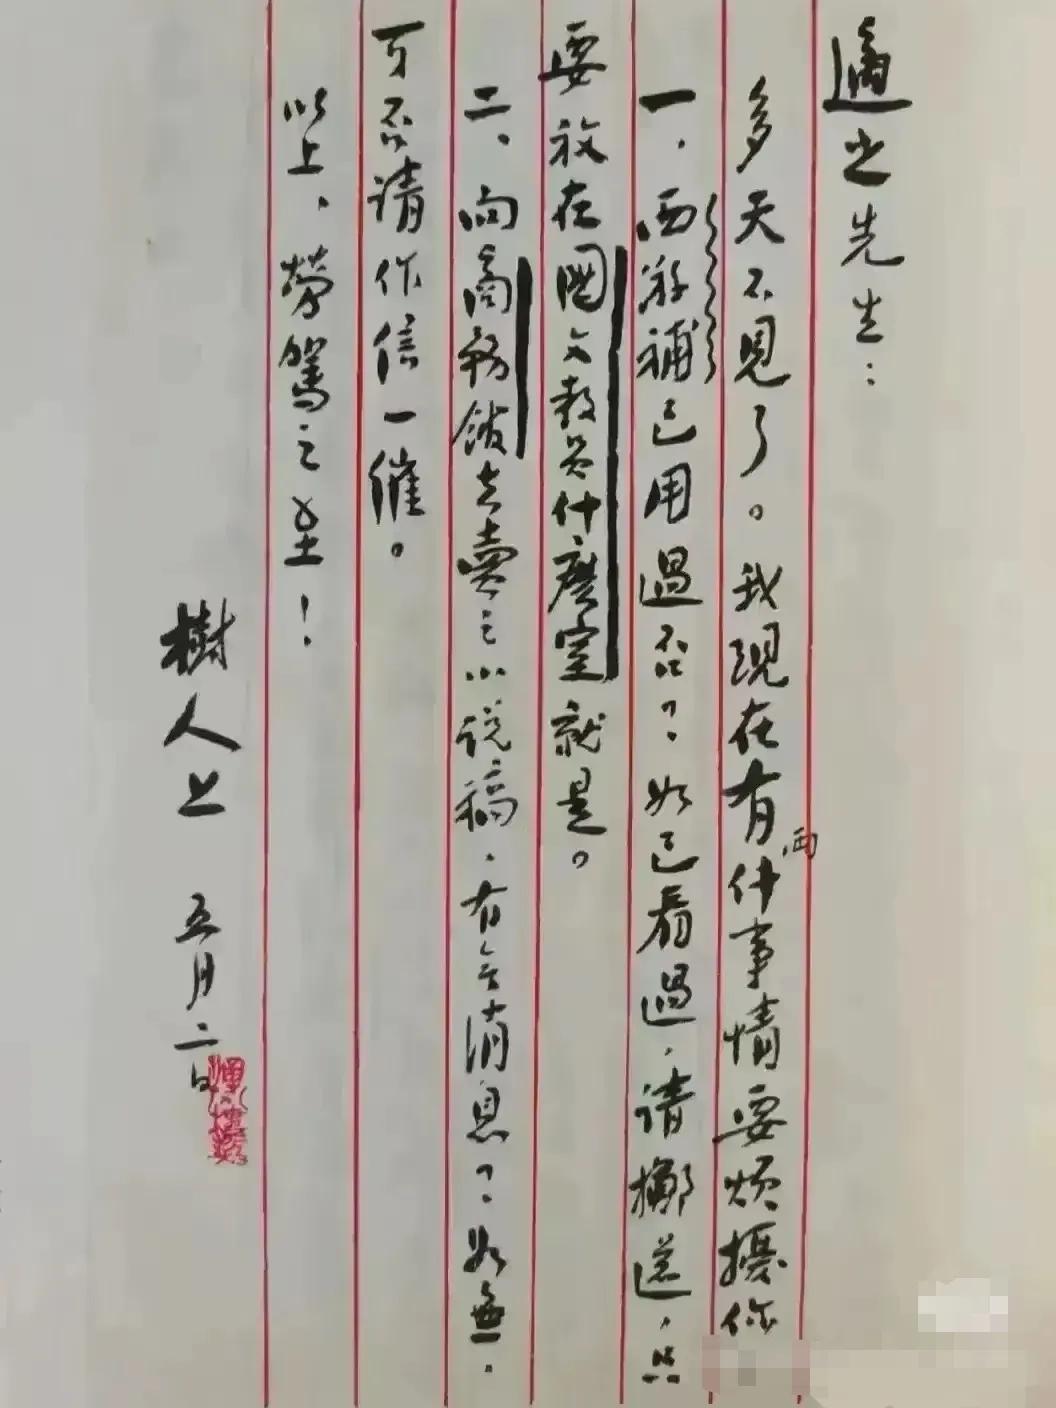 適之先生：
多天不見了。我現在有兩件事情要煩擾你
一，西游補已用過否？如已看過，請擲還，只
要放在國文教員什麽室就是。
二、向商務館去賣之小说稿，有無消息？如無，
可否請作信一催。
以上，勞駕之至！
樹人上 五月二日